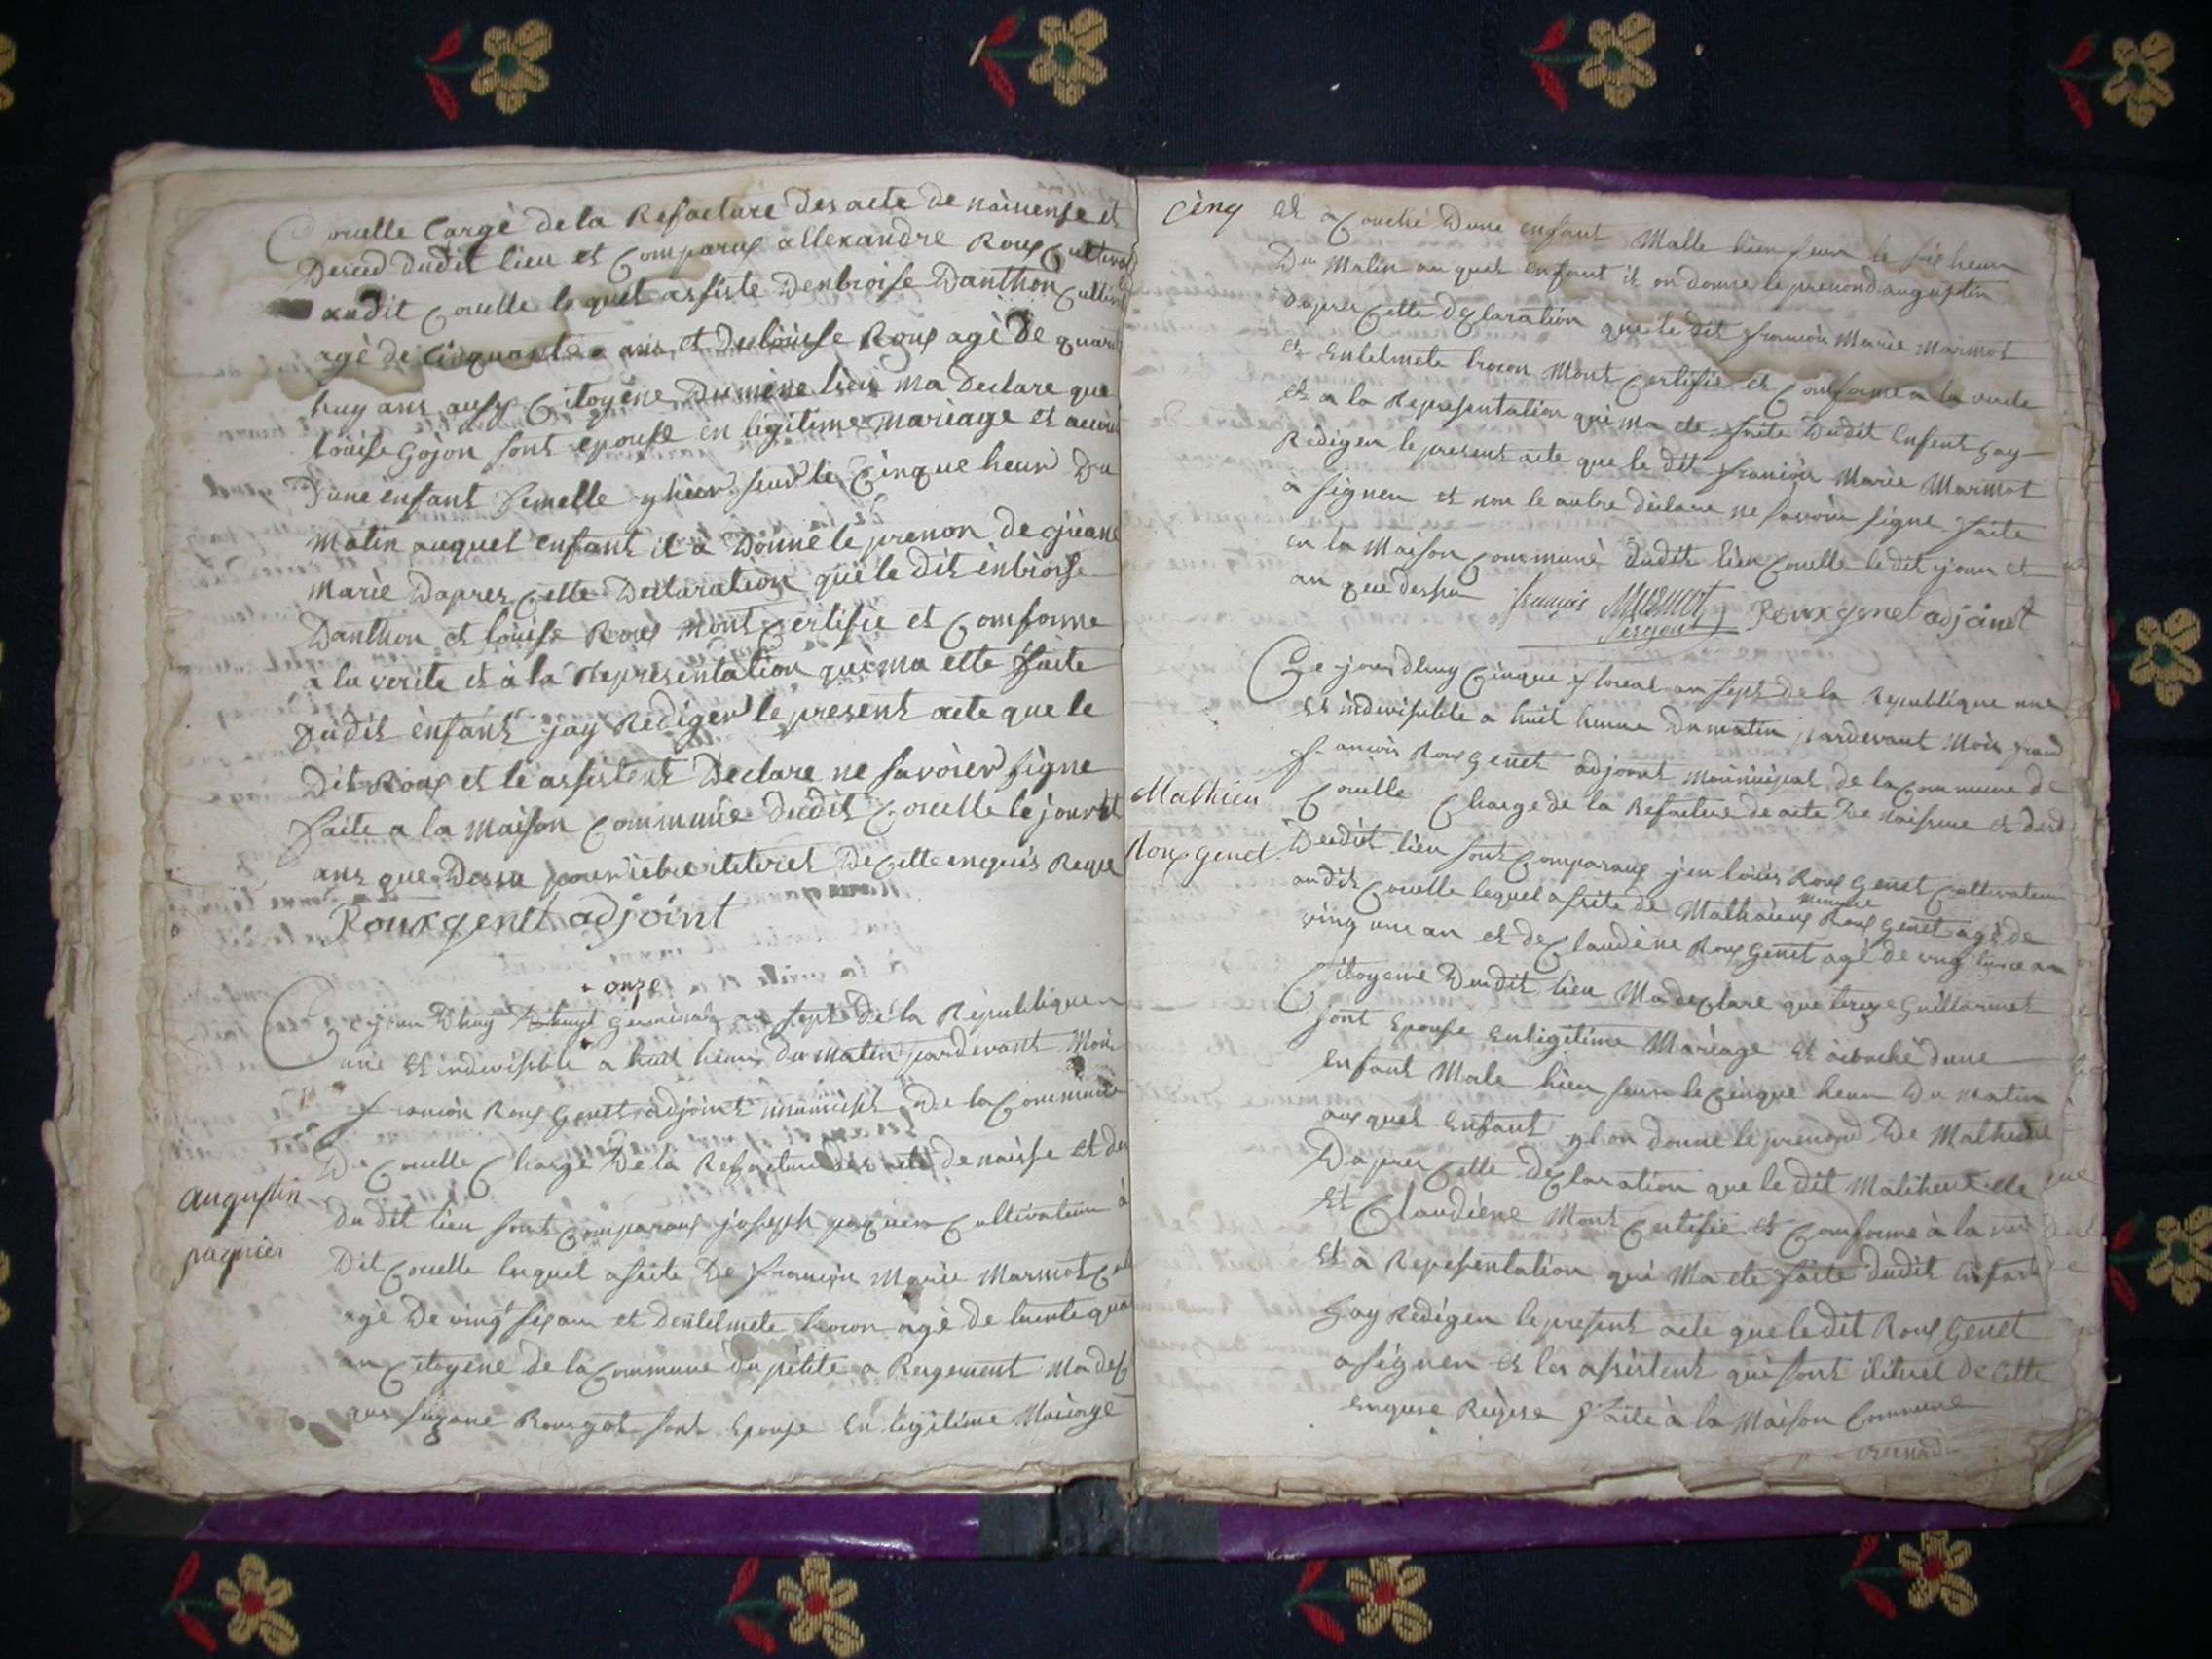 Corelle Cargé de la Refacture des acte de nainense et
Deséed dudit lieu et Comparus allexandre Roux Cultivat
audit Corelle lequel assiste Denbroise Danthon Cultiv
agé de Cinquante ans et de louisse Roux agè de quarant
huy ans ausy Citoyéne Du méne lieu ma Declare que
louise Gojon sont epouse en ligitime mariage et acou
Dune enfant Femelle yhier seur le Cinque heur Du
matin auquel enfant il a Donné le prenon de gieane
Marie Dapres Cette Declaration que le dit enbroise
Danthon et louise Roux mont Certifie et Comforme
a la verite et à la Representation qui ma ette faite
Dudit enfant jay Rediger le present acte que le
Dit Roux et le assistent Declare ne savoier signe
Faite a la maison Commune dudit Corelle le jour et
ans que Dessu
Rouxgenet adjoint
onze
Ce jour Dhuy germinal an sept de la Republique
une et indivisible a huit heur du matin pardevant Moi
francoin Roux Genet adjoint municipt De la Commune
De Corelle Charge De la Refacture des acte de naisse et de
augustin
paquier
du dit lieu sont Comparaus joseph paquier Cultivateur à
Dit Corelle lequel asiste De francois Marie Marmot Cul
agé De vingt six an et dentelmete trocon agé de trente qua
an Citogene de la Commune du petite a Bergement Ma dec
que sugane Bourgot sont Epouse En legitime Mariage
cinq
et a Couché Dune enfant Malle hier seur le six heur
Du Matin au quel enfant il on donne le prenond augustin
Dapres Cette Declaration que le dit francois Marie Marmot
et Entelmete trocon Mont Certifie et Comforme a la verite
et a la Representation qui ma ete faite Dudit Enfent Jay
Rédiger le present acte que le dit francois Marie Marmot
a signer et non le autre declare ne savoir signe faite
en la Maison Commune dudit lieu Corelle le dit jour et
an que dessu françois Marmot Rouxgenet adjoint
Ce jourdhuy Cinque floreal an sept de la Republique une
et indivisible a huit heure Du matin pardevant Moi
francois Roux Genet adjoint municipal de la Commune de
Mathieu
Roux genet
Corelle Charge de la Refacture de acte De naissance et desd
Deudit lieu sont Comparaus jen louis Roux Genet Cultivateur
audit Corelle lequel asiste de Mathaieux Roux Genet agé de
ving une an et de Claudène Roux Genet agé de ving an
Citoyenne Dudit lieu Ma declare que tereze Guillarmet
sont Epouse En ligitime Mariage et acouché dune
Enfant Male hier seur le Cinque heur Du matin
auxquel Enfant yl on donne le prenond De Mathieu
Dapres Cette Declaration que le dit Matiheu
Et Claudiène Mont Certifie et Comforme à la
Et à Representation qui Ma ete faite dudit Enfant
Jay Rédiger le present acte que le dit Roux Genet
a signer et les assistent qui sont iliteret de Cette
enquse Requse faite à la Maison Commune